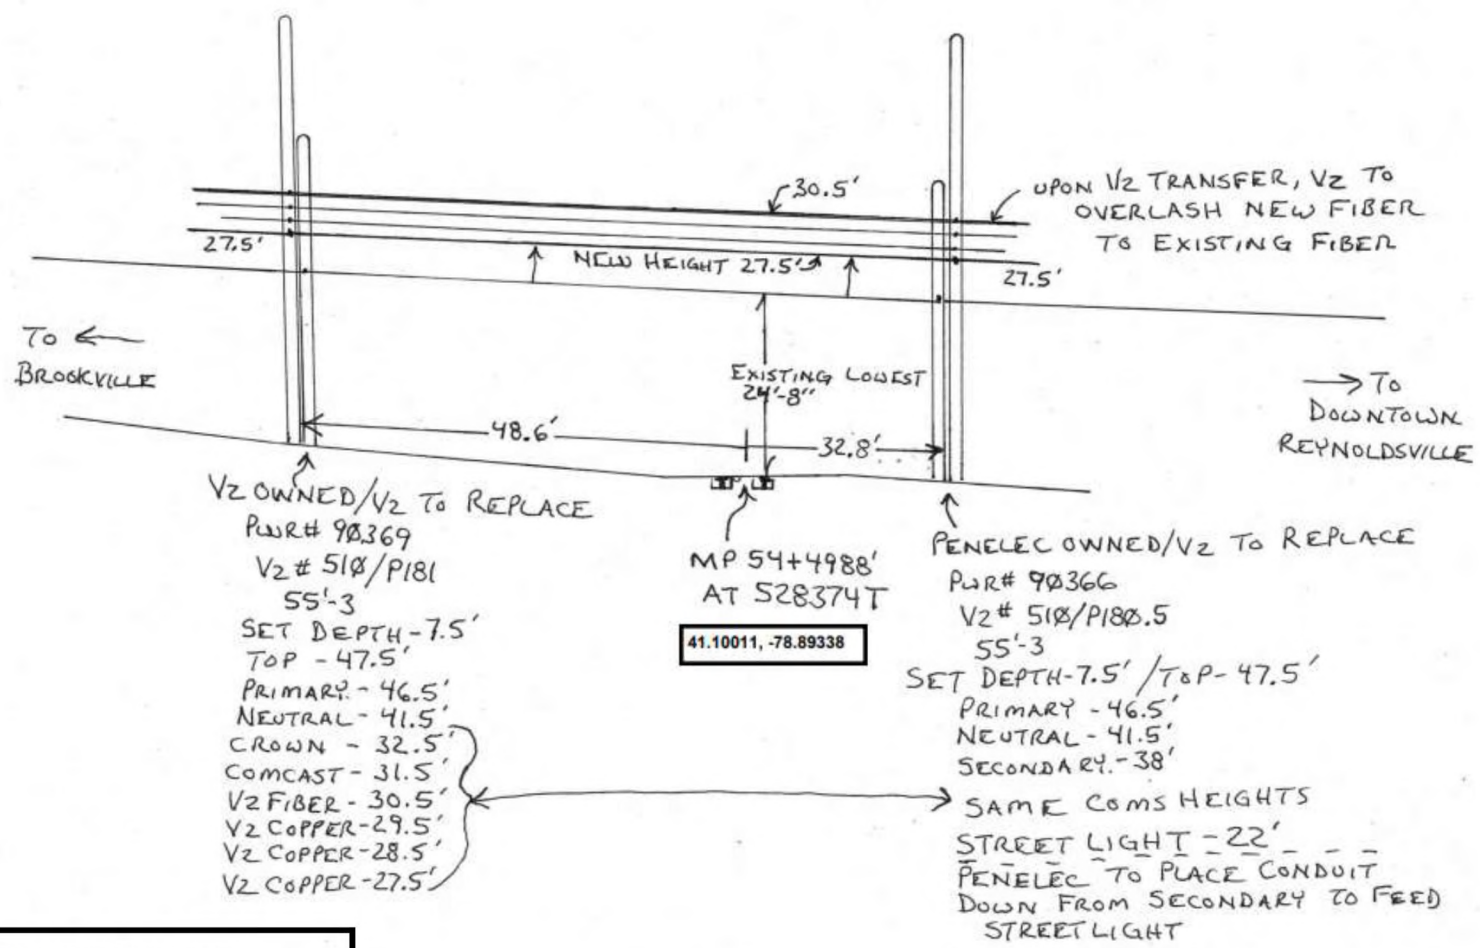 30.5'
UPON VZ TRANSFER, VZ TO
OVERLASH NEW FIBER
TO EXISTING FIBER
27.5'
NEW HEIGHT 27.5'
27.5'
TO
BROOKVILLE
EXISTING LOWEST
24'-8"
TO
DOWNTOWN
REYNOLDSVILLE
48.6'
32.8'
VZ OWNED/VZ TO REPLACE
PWR# 9Ø369
VZ# 51Ø/P181
55'-3
SET DEPTH-7.5'
TOP - 47.5'
PRIMARY - 46.5'
NEUTRAL - 41.5'
CROWN - 32.5'
COMCAST - 31.5'
VZ FIBER - 30.5'
VZ COPPER-29.5'
VZ COPPER-28.5'
VZ COPPER-27.5'
MP 54+4988'
AT 528374T
41.10011, -78.89338
PENELEC OWNED/VZ TO REPLACE
PWR# 9Ø366
VZ# 51Ø/P18Ø.5
55'-3
SET DEPTH-7.5' / TOP- 47.5'
PRIMARY - 46.5'
NEUTRAL - 41.5'
SECONDARY.-38'
SAME COMS HEIGHTS
STREET LIGHT - 22'
PENELEC TO PLACE CONDUIT
DOWN FROM SECONDARY TO FEED
STREET LIGHT